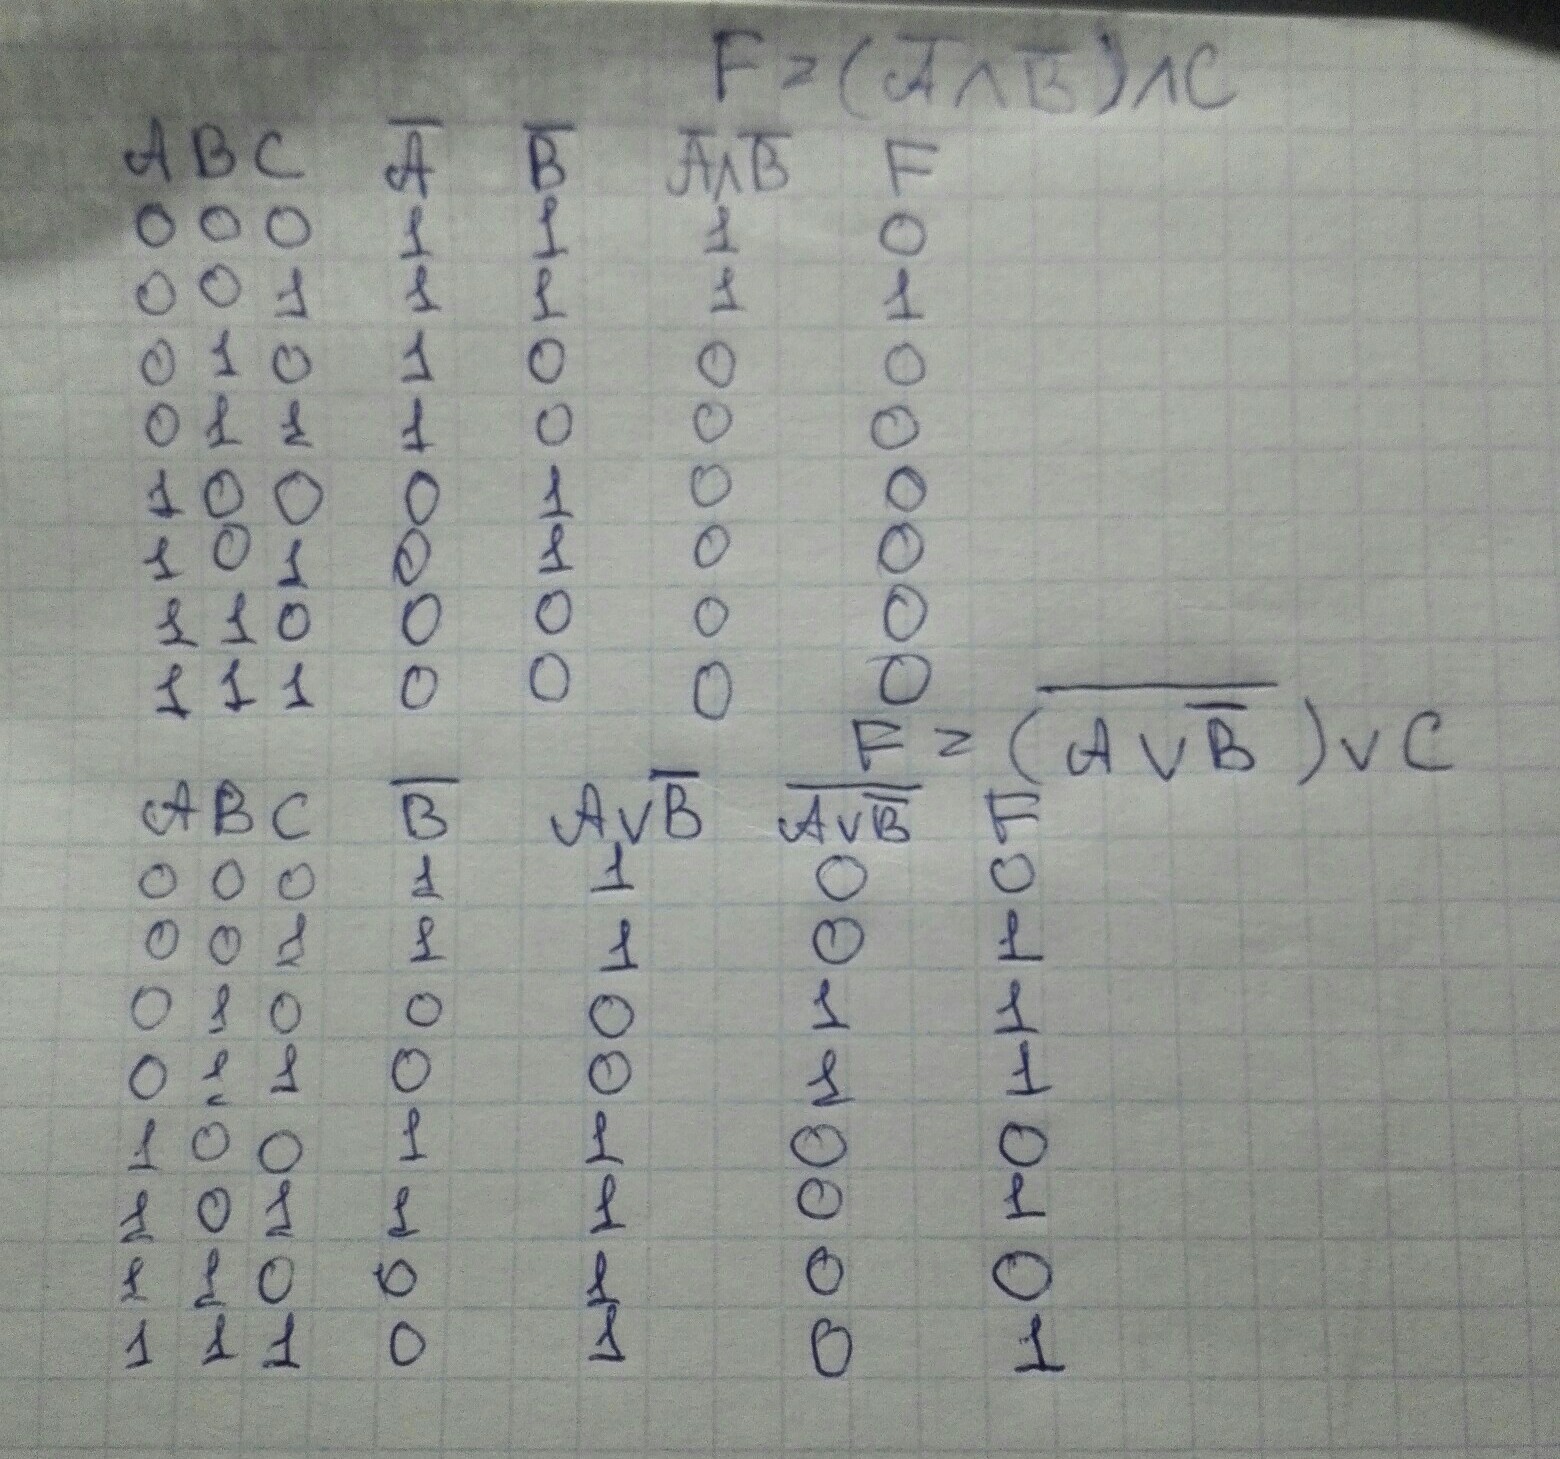 F = (A̅ ∧ B̅) ∧ C
A B C A̅ B̅ A̅∧B̅ F
0 0 0 1 1 1 0
0 0 1 1 1 1 1
0 1 0 1 0 0 0
0 1 1 1 0 0 0
1 0 0 0 1 0 0
1 0 1 0 1 0 0
1 1 0 0 0 0 0
1 1 1 0 0 0 0
F = (A̅ ̅∨̅ ̅B̿) ∨ C
A B C B̅ A∨B̅ A̅∨̅B̿ F
0 0 0 1 1 0 0
0 0 1 1 1 0 1
0 1 0 0 0 1 1
0 1 1 0 0 1 1
1 0 0 1 1 0 0
1 0 1 1 1 0 1
1 1 0 0 1 0 0
1 1 1 0 1 0 1